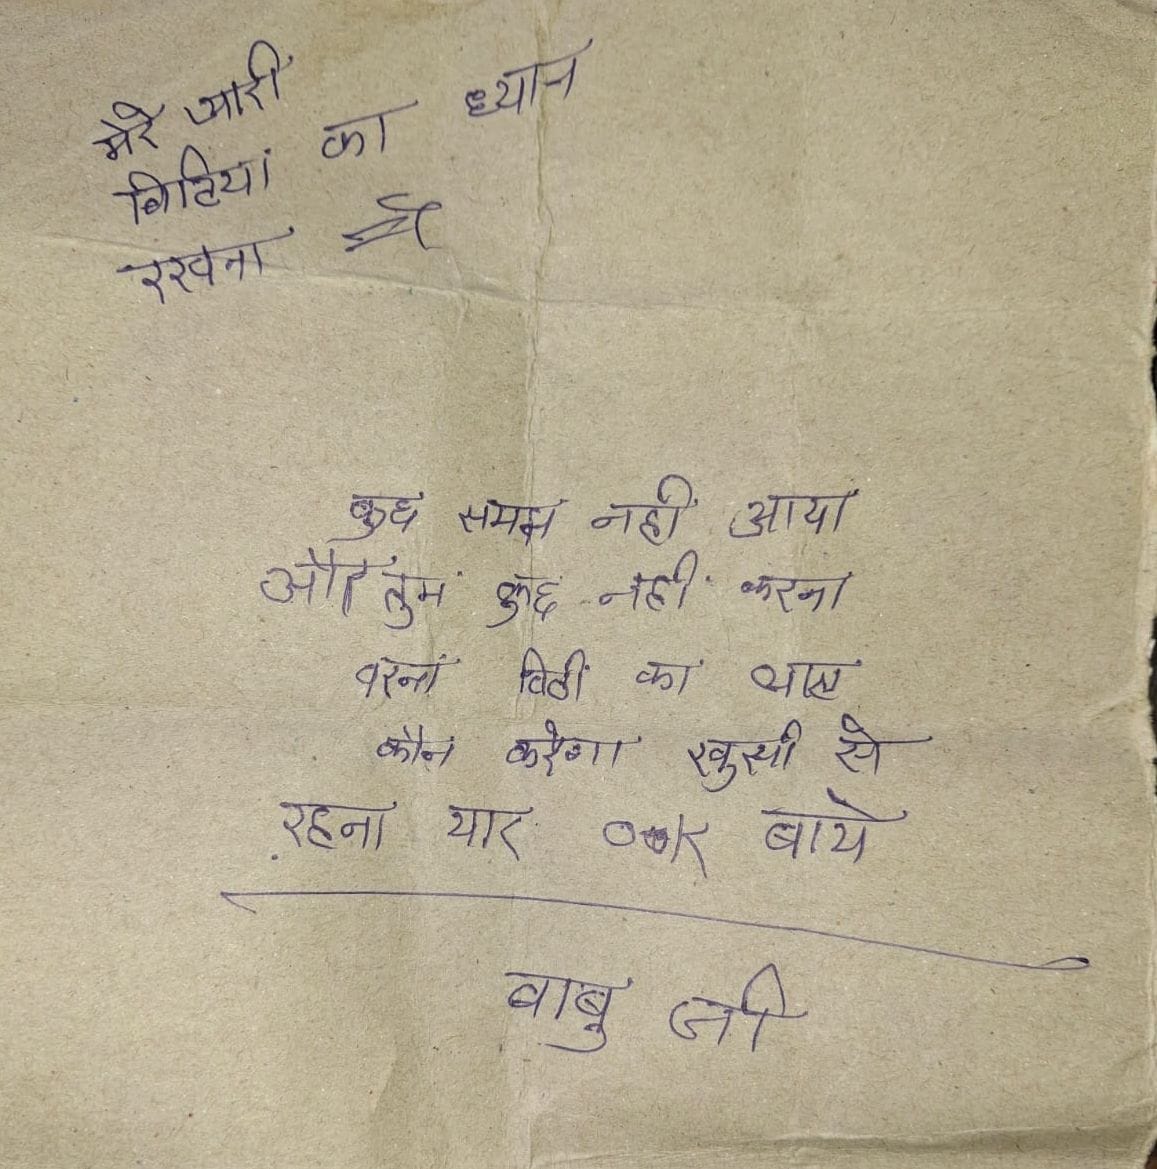 मेरे प्यारी
बिटियां का ध्यान
रखना
कुछ समझ नहीं आया
और तुम कुछ नहीं करना
वरना बिटीं का
कौन करेगा खुसी से
रहना यार ook बाये
बाबु जी